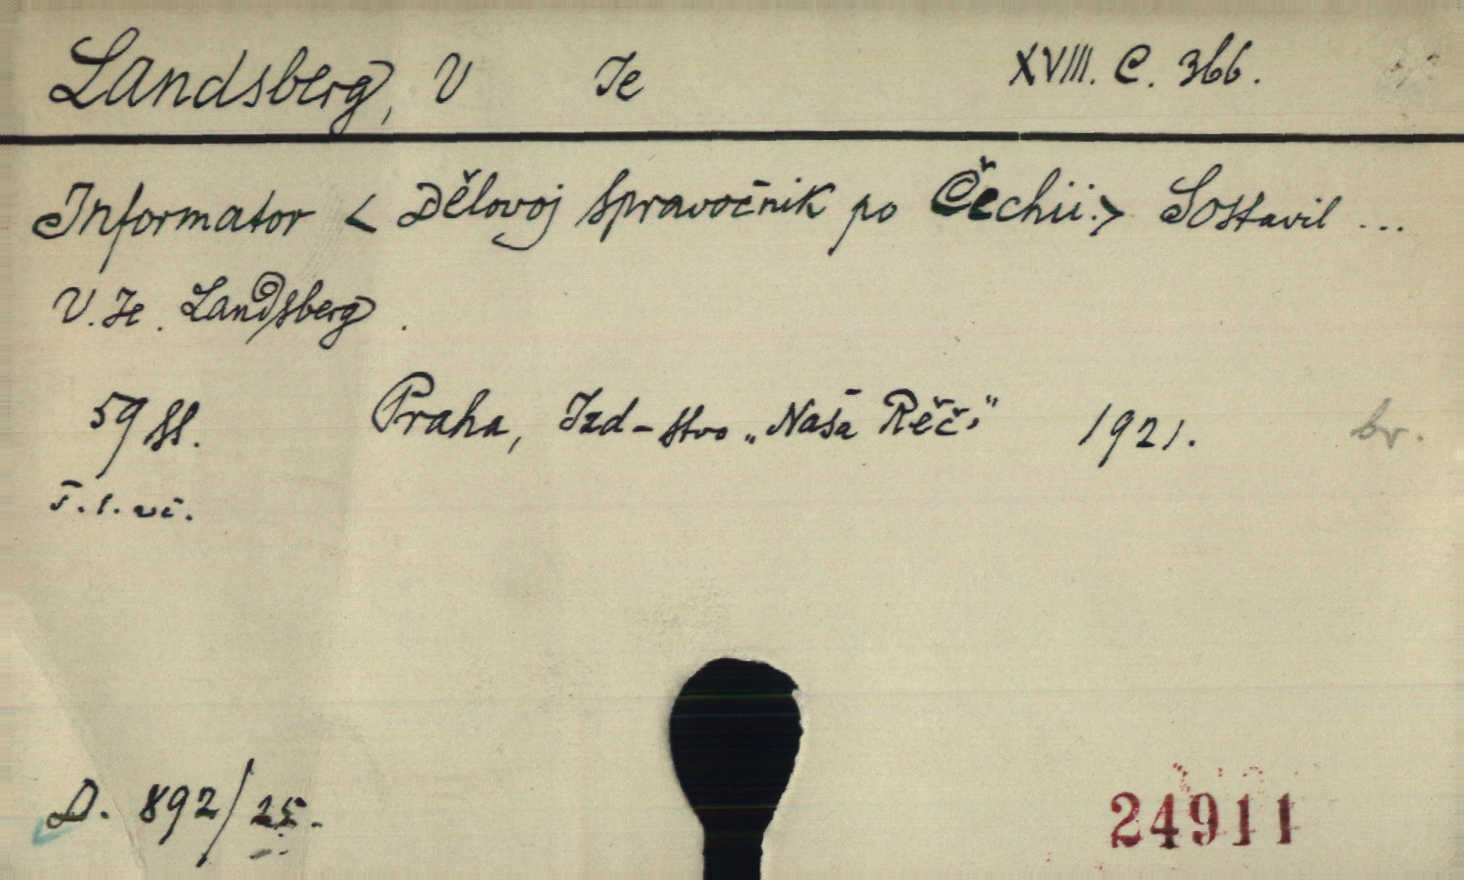 Landsberg, V Je XVIII. C. 366.
Informator < Dělovoj spravočnik po Čechii.> Sostavil ...
V. Je. Landsberg.
59 ss. Praha, Izd-stvo „Naša Rěč” 1921. br.
D. 892/25.
24911